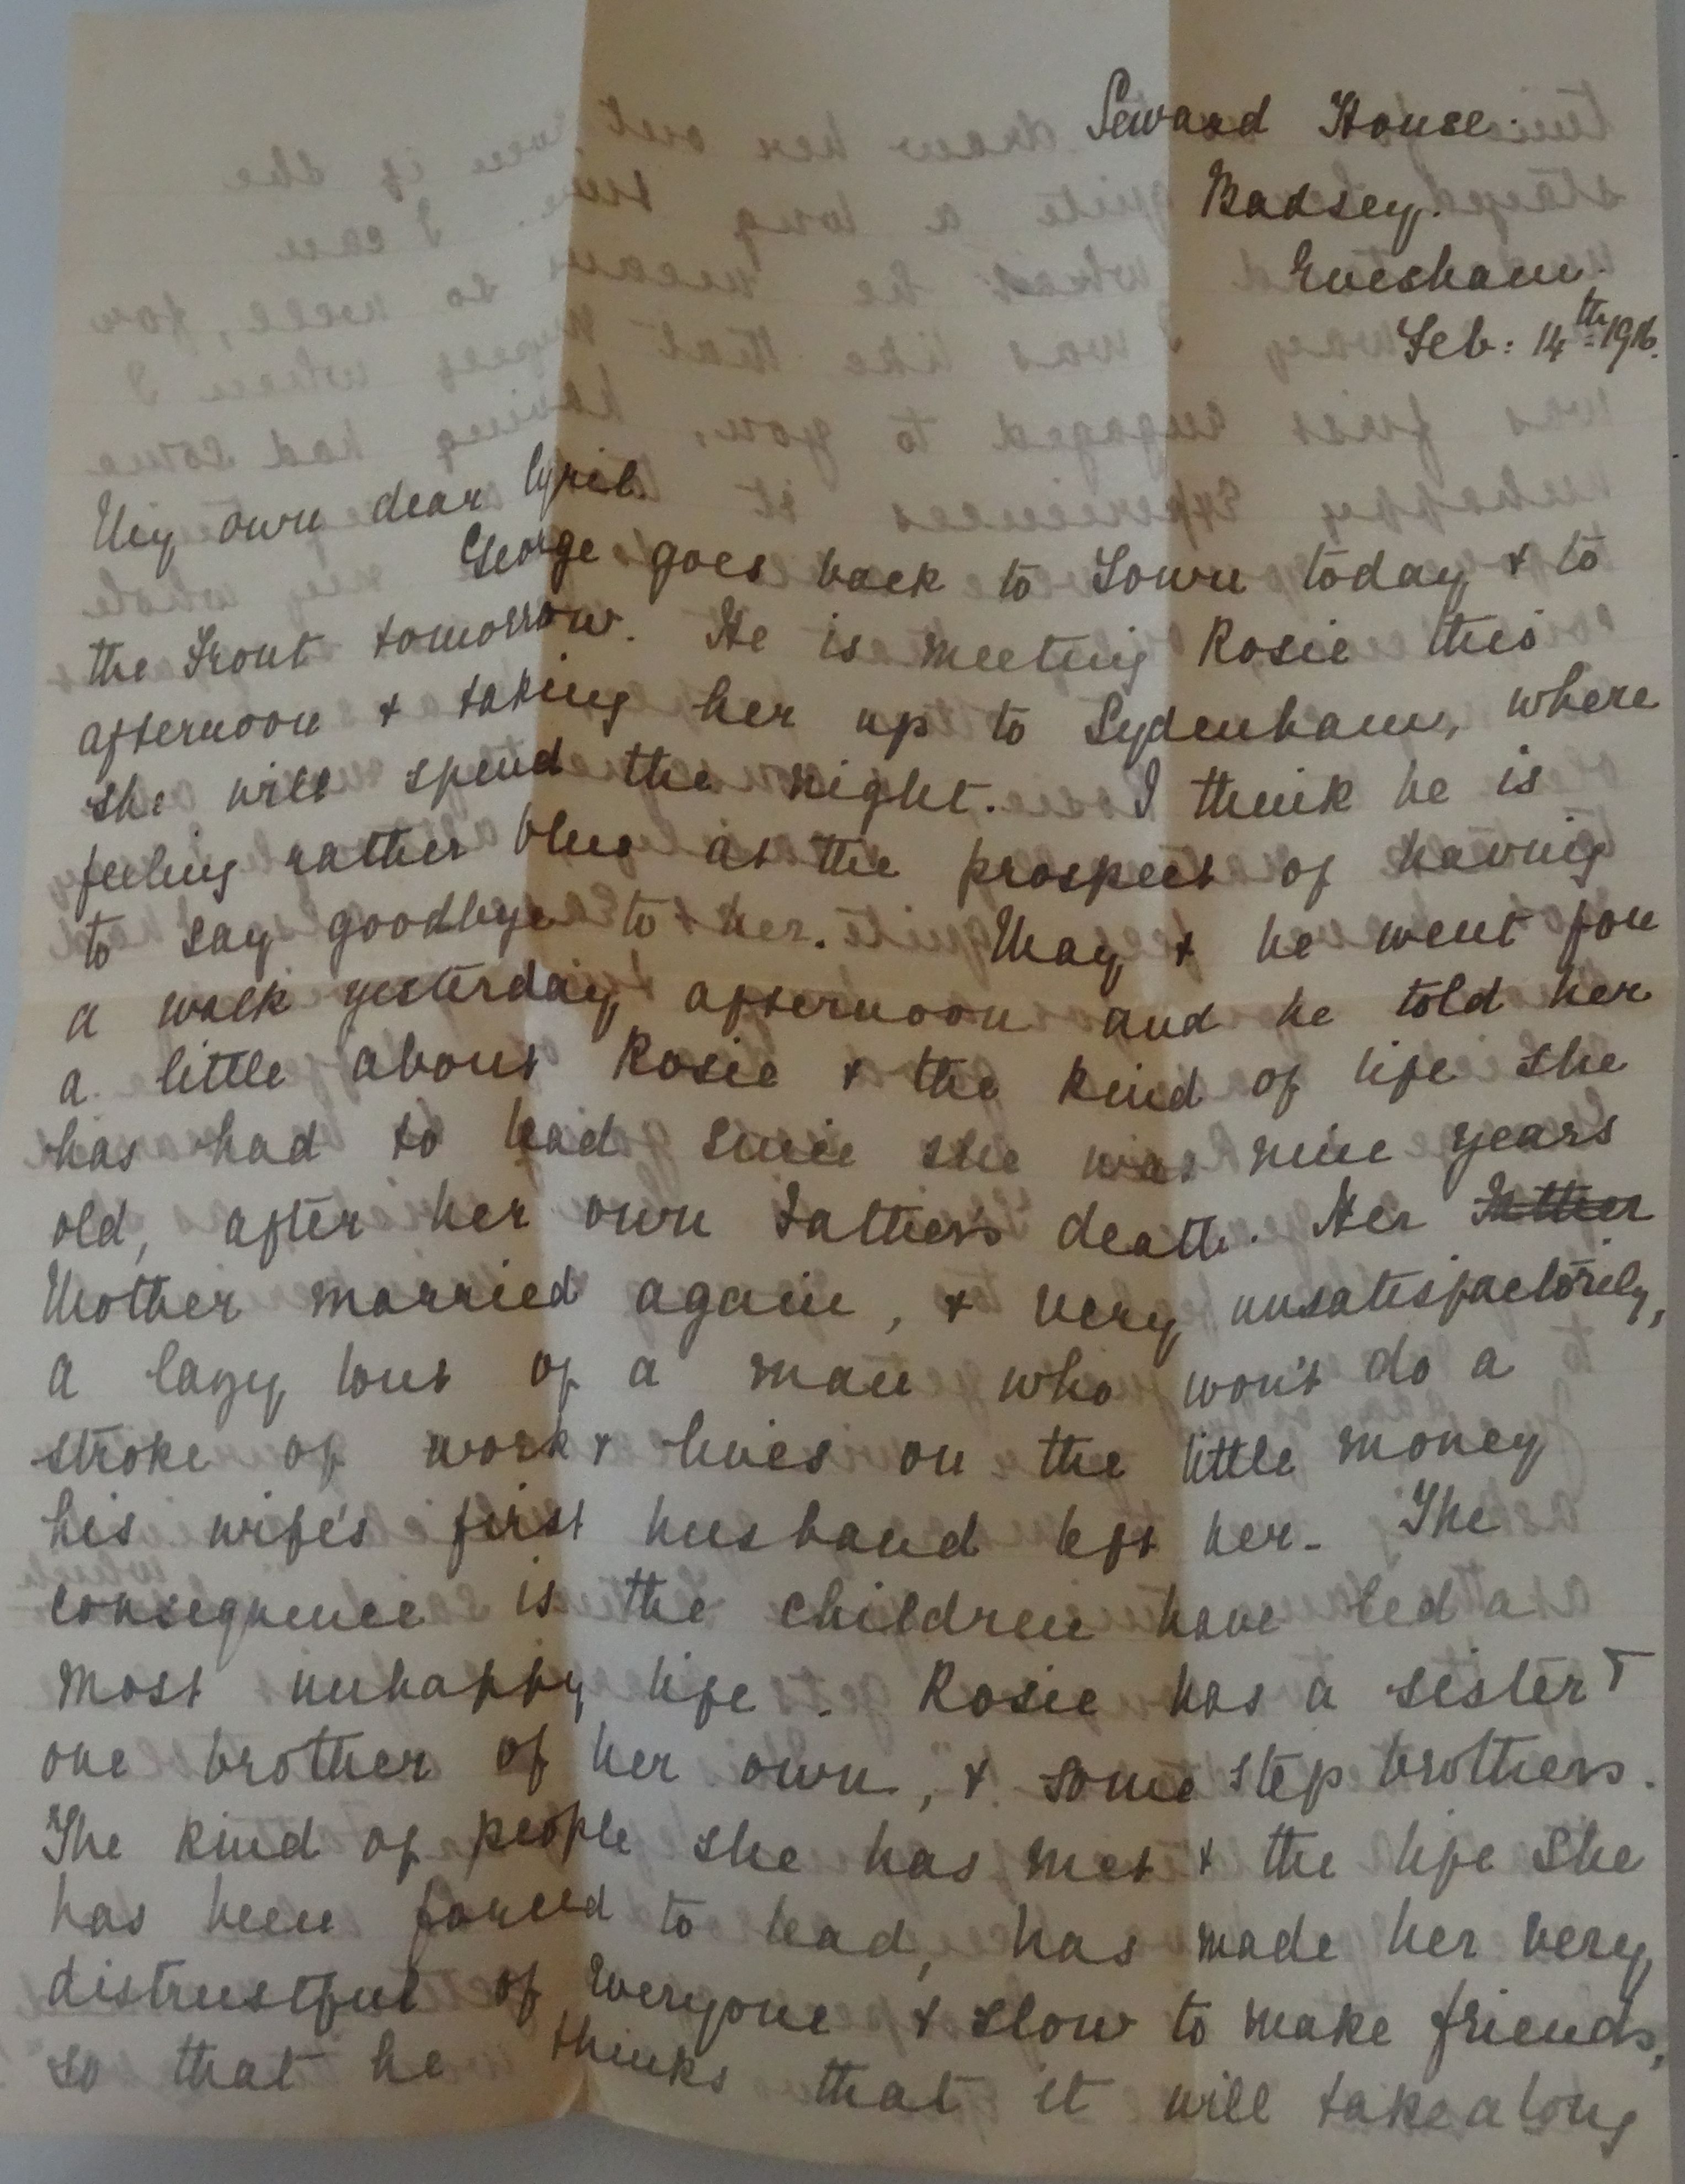 Seward House.
Badsey.
Evesham.
Feb: 14th 1916.
My own dear Cyril.
George goes back to Town today & to
the Front tomorrow. He is meeting Rosie this
afternoon & taking her up to Sydenham, where
she will spend the night. I think he is
feeling rather blue at the prospect of having
to say goodbye to her. May & he went for
a walk yesterday afternoon and he told her
a little about Rosie & the kind of life she
has had to lead since she was nine years
old, after her own Father's death. Her Father
Mother married again, & very unsatisfactorily,
a lazy lout of a man who won't do a
stroke of work & lives on the little money
his wife's first husband left her. The
consequence is the children have led a
most unhappy life. Rosie has a sister &
one brother of her own, & some step brothers.
The kind of people she has met & the life she
has been forced to lead, has made her very
distrustful of everyone & slow to make friends,
so that he thinks that it will take a long